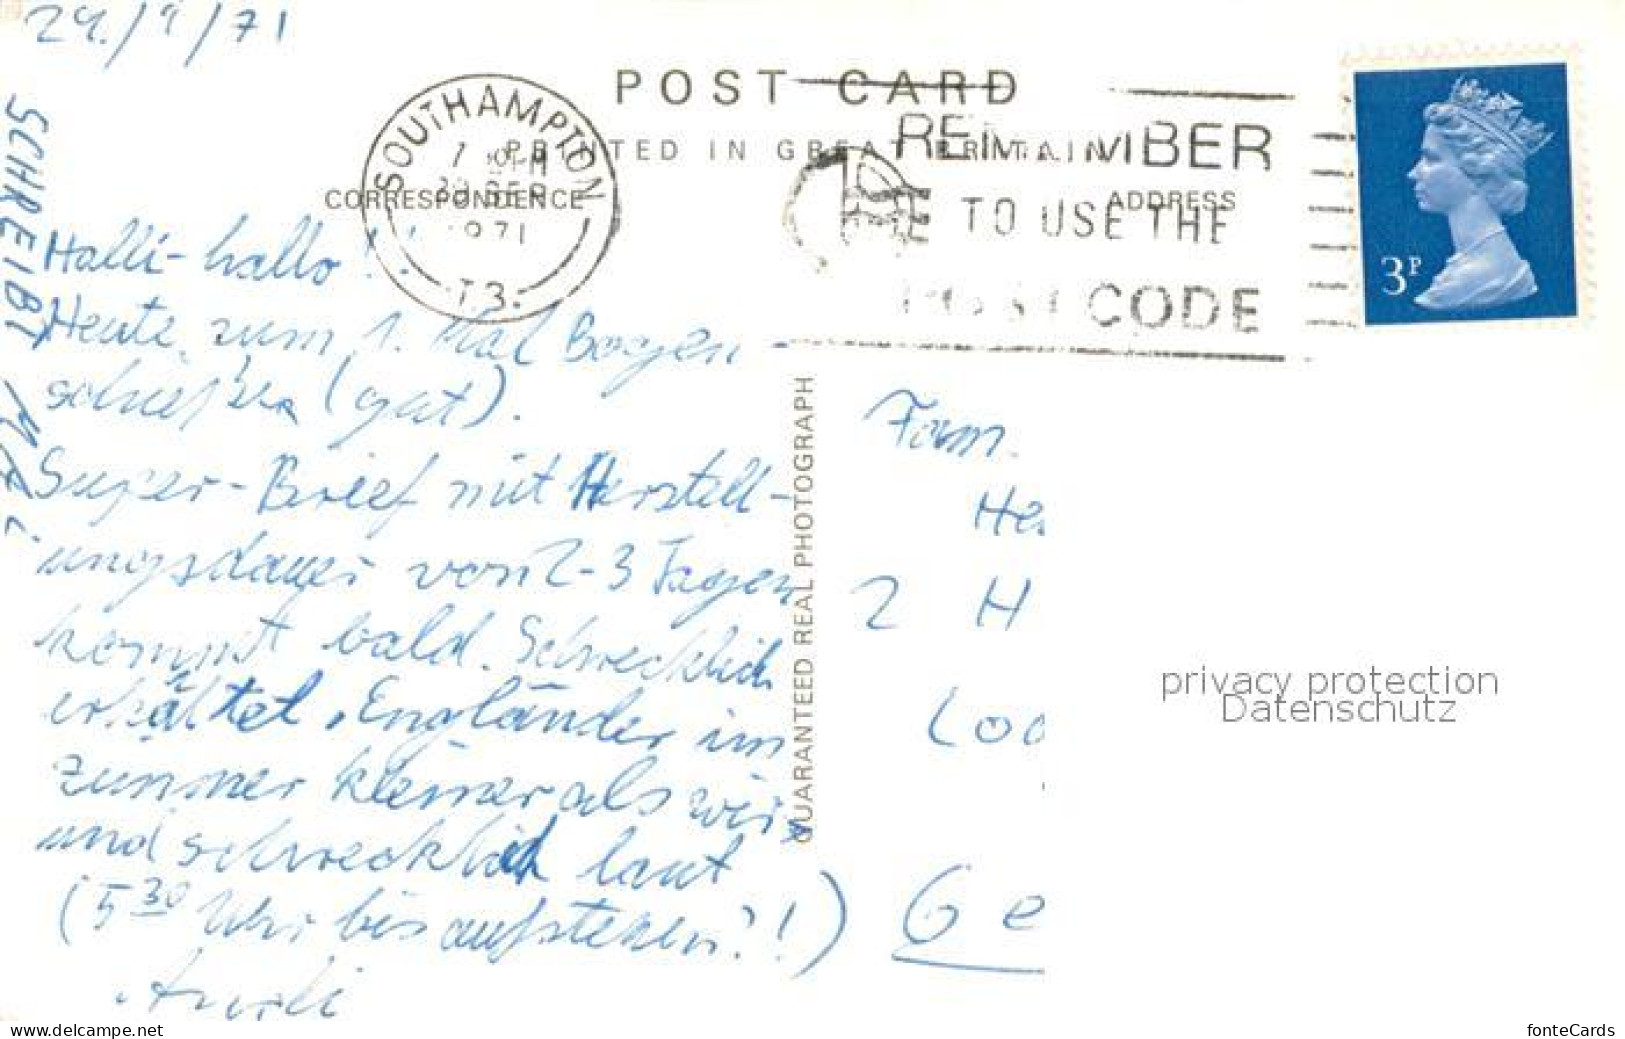 29./9/71
POST CARD
PRINTED IN GREAT BRITAIN
CORRESPONDENCE
ADDRESS
SOUTHAMPTON
SEP
1971
T3
REMEMBER
TO USE THE
POST CODE
3P
SCHREIBT MAL
Halli-hallo!!
Heute zum 1. Mal Bogen-
schießen (gut).
Super-Brief mit Herstell-
ungsdauer von 2-3 Tagen
kommt bald. Schrecklich
erkältet. Engländer im
Zimmer kleiner als wir
und schrecklich laut
(5 30 Uhr bis aufstehen?!)
GUARANTEED REAL PHOTOGRAPH
Fam.
He
2 H
Loc
Ge
privacy protection
Datenschutz
www.delcampe.net
fonteCards